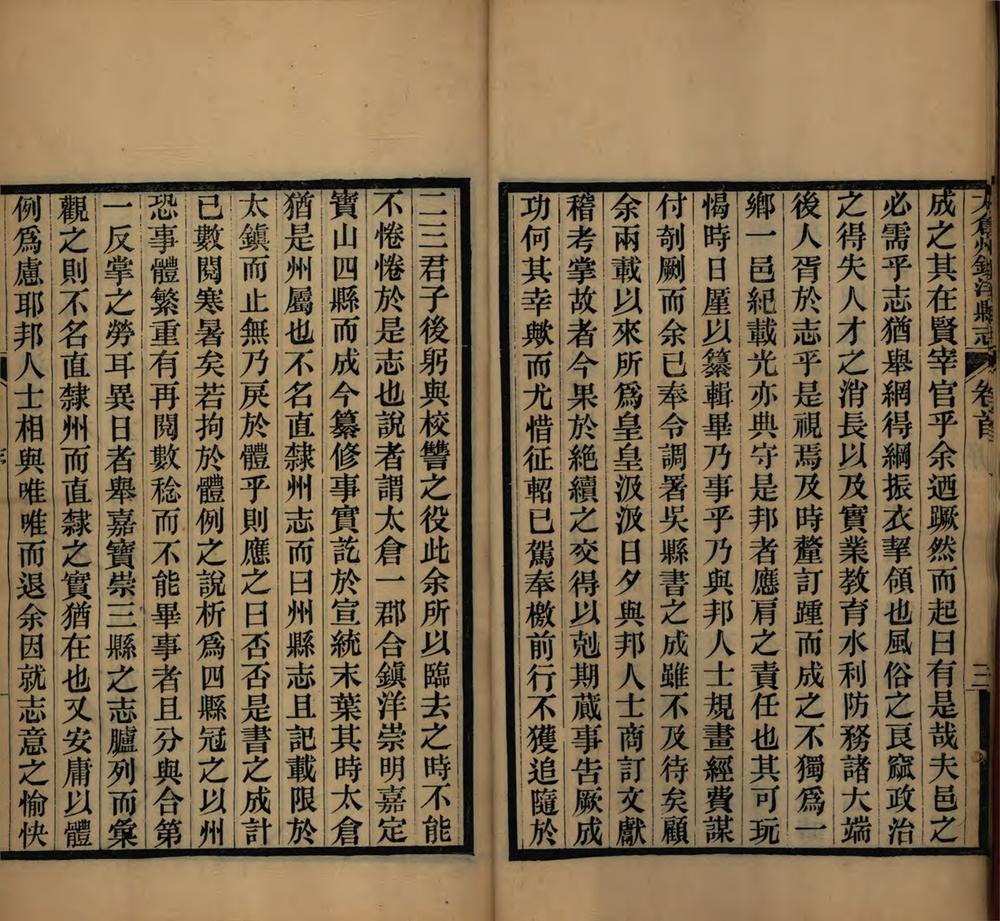 太倉州鎮洋縣志 卷首 三
成之其在賢宰官乎余迺蹶然而起曰有是哉夫邑之
必需乎志猶舉網得綱振衣挈領也風俗之良窳政治
之得失人才之消長以及實業教育水利防務諸大端
後人胥於志乎是視焉及時釐訂踵而成之不獨爲一
鄉一邑紀載光亦典守是邦者應肩之責任也其可玩
愒時日厪以纂輯畢乃事乎乃與邦人士規畫經費謀
付剞劂而余已奉令調署吳縣書之成雖不及待矣顧
余兩載以來所爲皇皇汲汲日夕與邦人士商訂文獻
稽考掌故者今果於絶續之交得以剋期蕆事告厥成
功何其幸歟而尤惜征軺已駕奉檄前行不獲追隨於
二三君子後躬與校讐之役此余所以臨去之時不能
不惓惓於是志也說者謂太倉一郡合鎮洋崇明嘉定
寶山四縣而成今纂修事實訖於宣統末葉其時太倉
猶是州屬也不名直隸州志而曰州縣志且記載限於
太鎮而止無乃戾於體乎則應之曰否否是書之成計
已數閱寒暑矣若拘於體例之說析爲四縣冠之以州
恐事體繁重有再閱數稔而不能畢事者且分與合第
一反掌之勞耳異日者舉嘉寶崇三縣之志臚列而彙
觀之則不名直隸州而直隸之實猶在也又安庸以體
例爲慮耶邦人士相與唯唯而退余因就志意之愉快
序